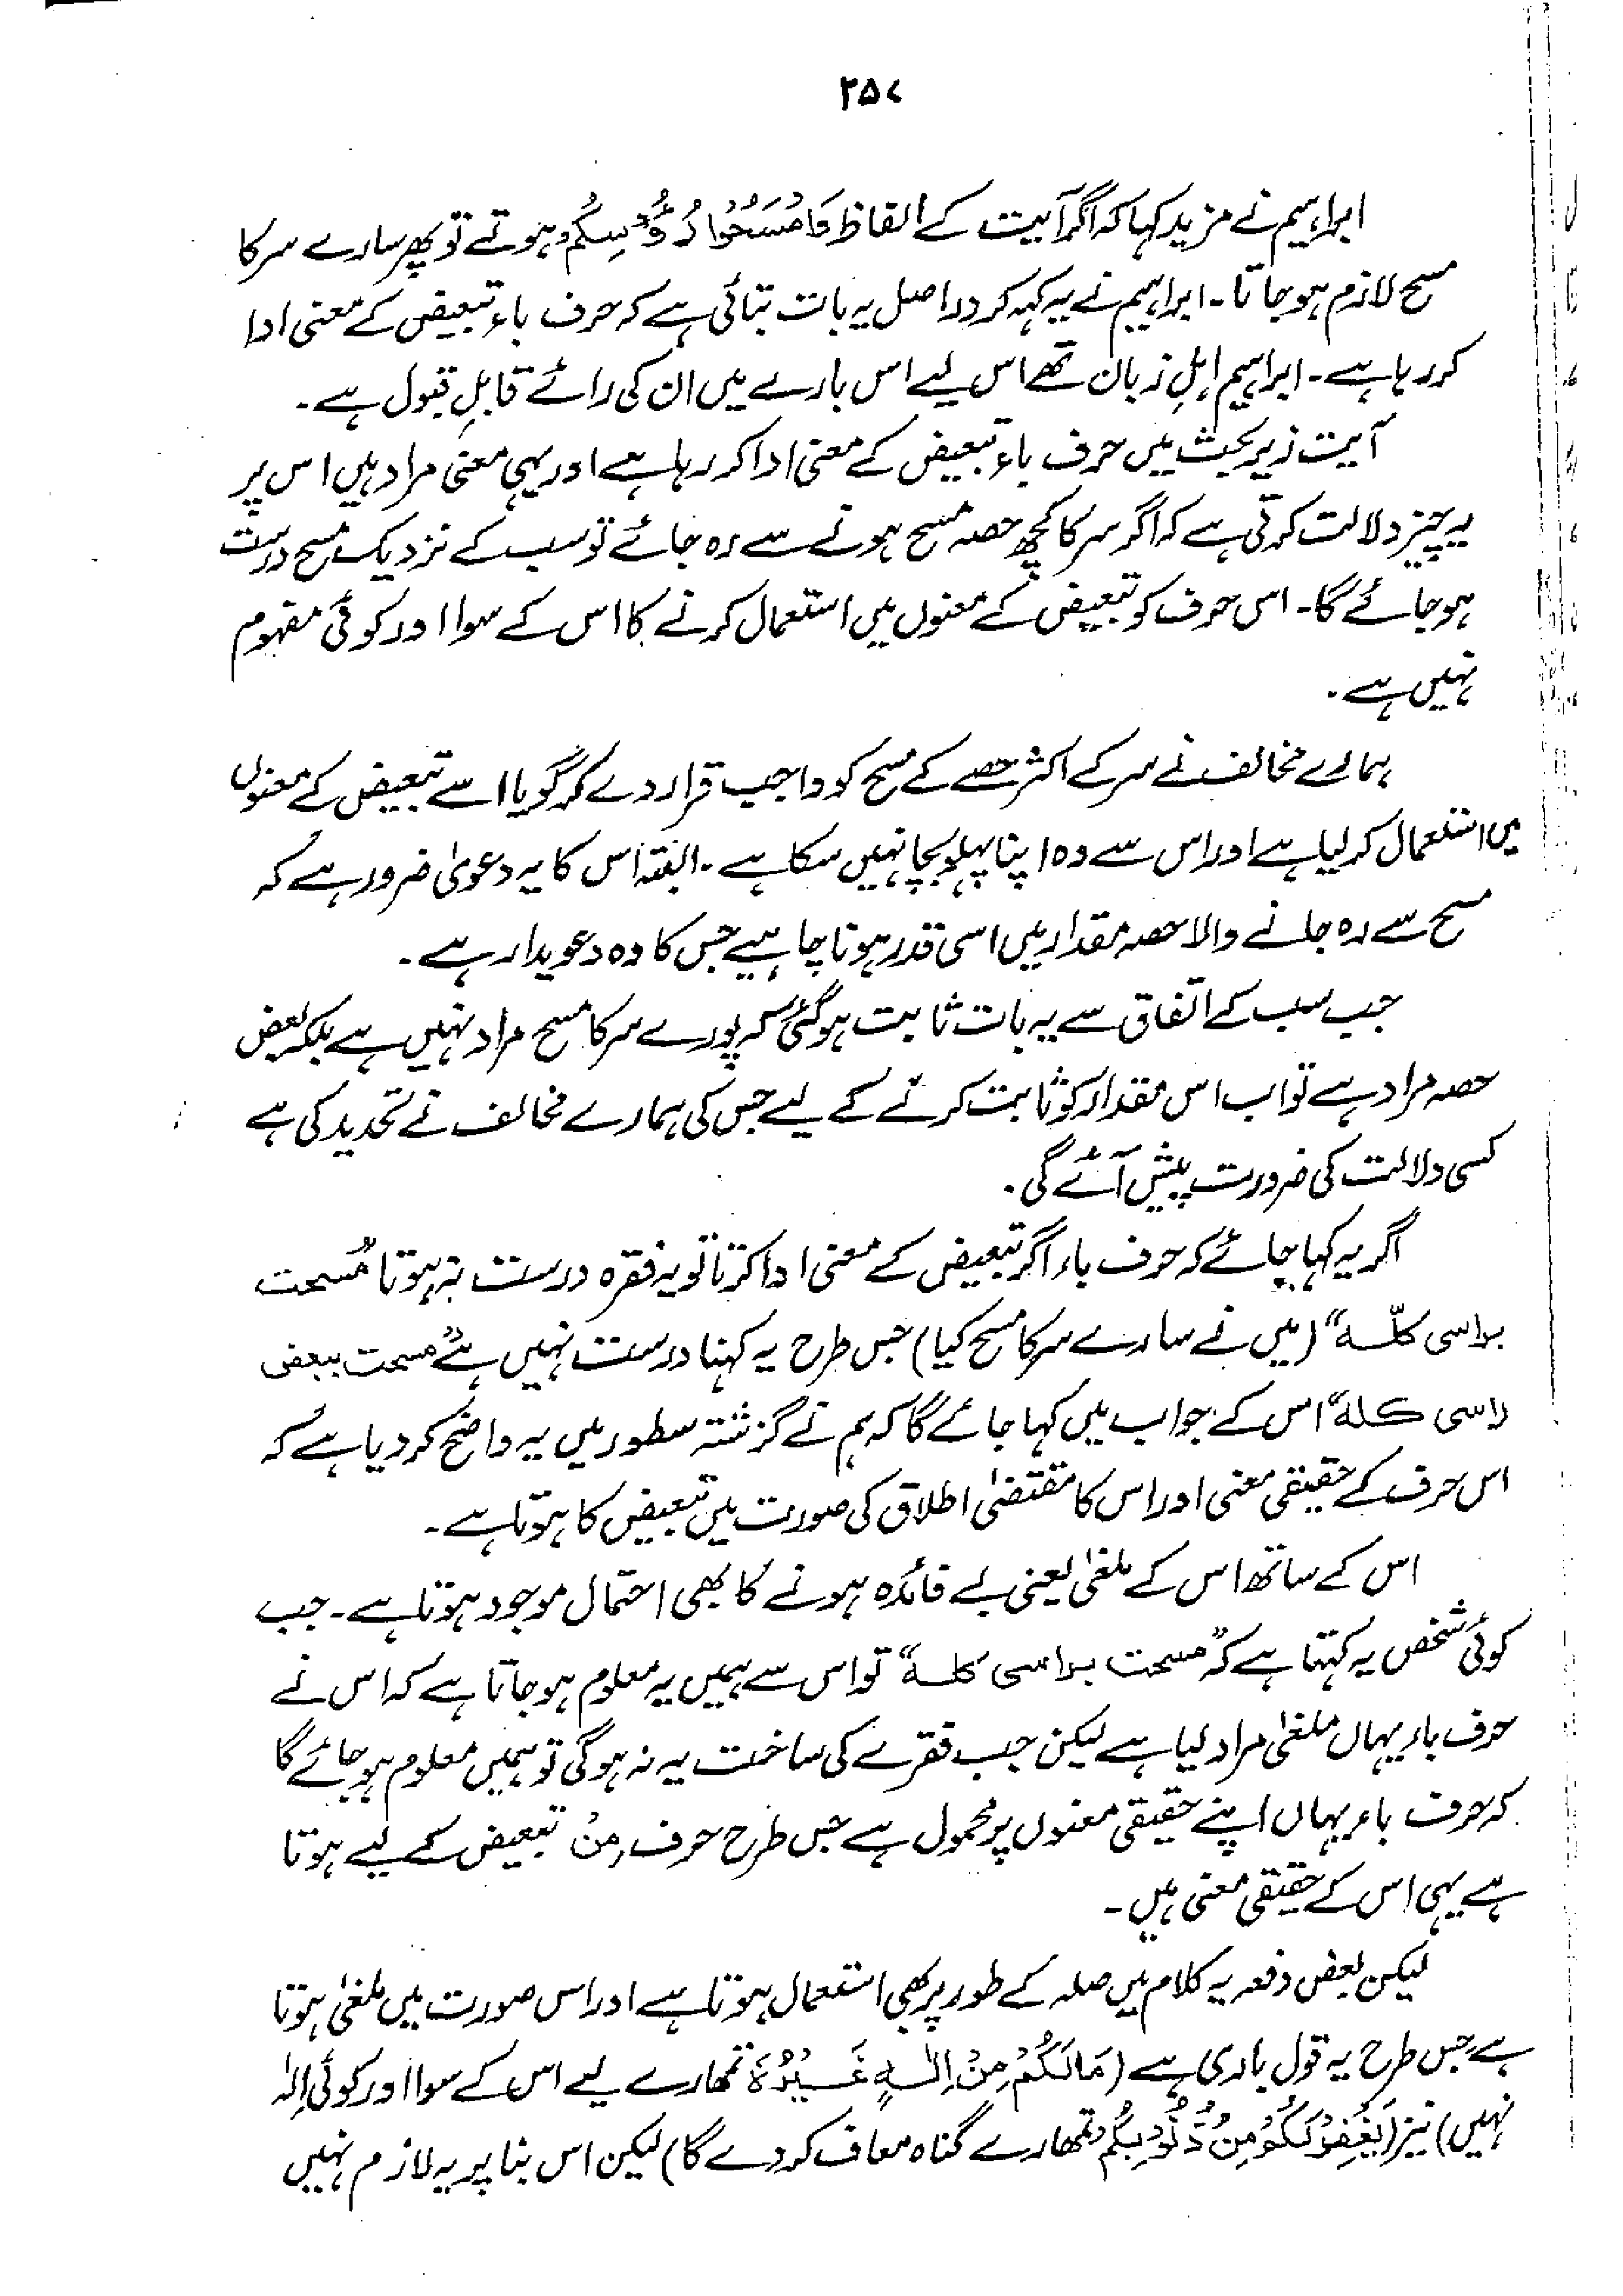 ۲۵۷
ابراہیم نے مزید کہا کہ اگر آیت کے الفاظ فَامْسَحُوْا رُءُوْسَکُمْ ہوتے تو پھر سارے سر کا
مسح لازم ہو جاتا۔ ابراہیم نے یہ کہہ کر دراصل یہ بات بتائی ہے کہ حرف باء تبعیض کے معنی ادا
کر رہا ہے۔ ابراہیم اہلِ زبان تھے اس لیے اس بارے میں ان کی رائے قابلِ قبول ہے۔
آیت زیر بحث میں حرف باء تبعیض کے معنی ادا کر رہا ہے اور یہی معنی مراد ہیں اس پر
یہ چیز دلالت کرتی ہے کہ اگر سر کا کچھ حصہ مسح ہونے سے رہ جائے تو سب کے نزدیک مسح درست
ہو جائے گا۔ اس حرف کو تبعیض کے معنوں میں استعمال کرنے کا اس کے سوا اور کوئی مفہوم
نہیں ہے۔
ہمارے مخالف نے سر کے اکثر حصے کے مسح کو واجب قرار دے کر گویا اسے تبعیض کے معنوں
میں استعمال کر لیا ہے اور اس سے وہ اپنا پہلو بچا نہیں سکا ہے۔ البتہ اس کا یہ دعویٰ ضرور ہے کہ
مسح سے رہ جانے والا حصہ مقدار میں اسی قدر ہونا چاہیے جس کا وہ دعویدار ہے۔
جب سب کے اتفاق سے یہ بات ثابت ہو گئی کہ پورے سر کا مسح مراد نہیں ہے بلکہ بعض
حصہ مراد ہے تو اب اس مقدار کو ثابت کرنے کے لیے جس کی ہمارے مخالف نے تحدید کی ہے
کسی دلالت کی ضرورت پیش آئے گی۔
اگر یہ کہا جائے کہ حرف باء اگر تبعیض کے معنی ادا کرتا تو یہ فقرہ درست نہ ہوتا "مسحت
براسی کلّہ" (میں نے سارے سر کا مسح کیا) جس طرح یہ کہنا درست نہیں ہے "مسحت ببعض
راسی کلہ" اس کے جواب میں کہا جائے گا کہ ہم نے گزشتہ سطور میں یہ واضح کر دیا ہے کہ
اس حرف کے حقیقی معنی اور اس کا مقتضیٰ اطلاق کی صورت میں تبعیض کا ہوتا ہے۔
اس کے ساتھ اس کے ملغیٰ یعنی بے فائدہ ہونے کا بھی احتمال موجود ہوتا ہے۔ جب
کوئی شخص یہ کہتا ہے کہ "مسحت براسی کلہ" تو اس سے ہمیں یہ معلوم ہو جاتا ہے کہ اس نے
حرف باء یہاں ملغیٰ مراد لیا ہے لیکن جب فقرے کی ساخت یہ نہ ہوگی تو ہمیں معلوم ہو جائے گا
کہ حرف باء یہاں اپنے حقیقی معنوں پر محمول ہے جس طرح حرف مِنْ تبعیض کے لیے ہوتا
ہے یہی اس کے حقیقی معنی ہیں۔
لیکن بعض دفعہ یہ کلام میں صلہ کے طور پر بھی استعمال ہوتا ہے اور اس صورت میں ملغیٰ ہوتا
ہے جس طرح یہ قول باری ہے (مَالَکُمْ مِنْ اِلٰہٍ غَیْرُہٗ تمھارے لیے اس کے سوا اور کوئی اِلٰہ
نہیں) نیز (یَغْفِرْ لَکُمْ مِنْ ذُنُوْبِکُمْ تمھارے گناہ معاف کر دے گا) لیکن اس بنا پر یہ لازم نہیں